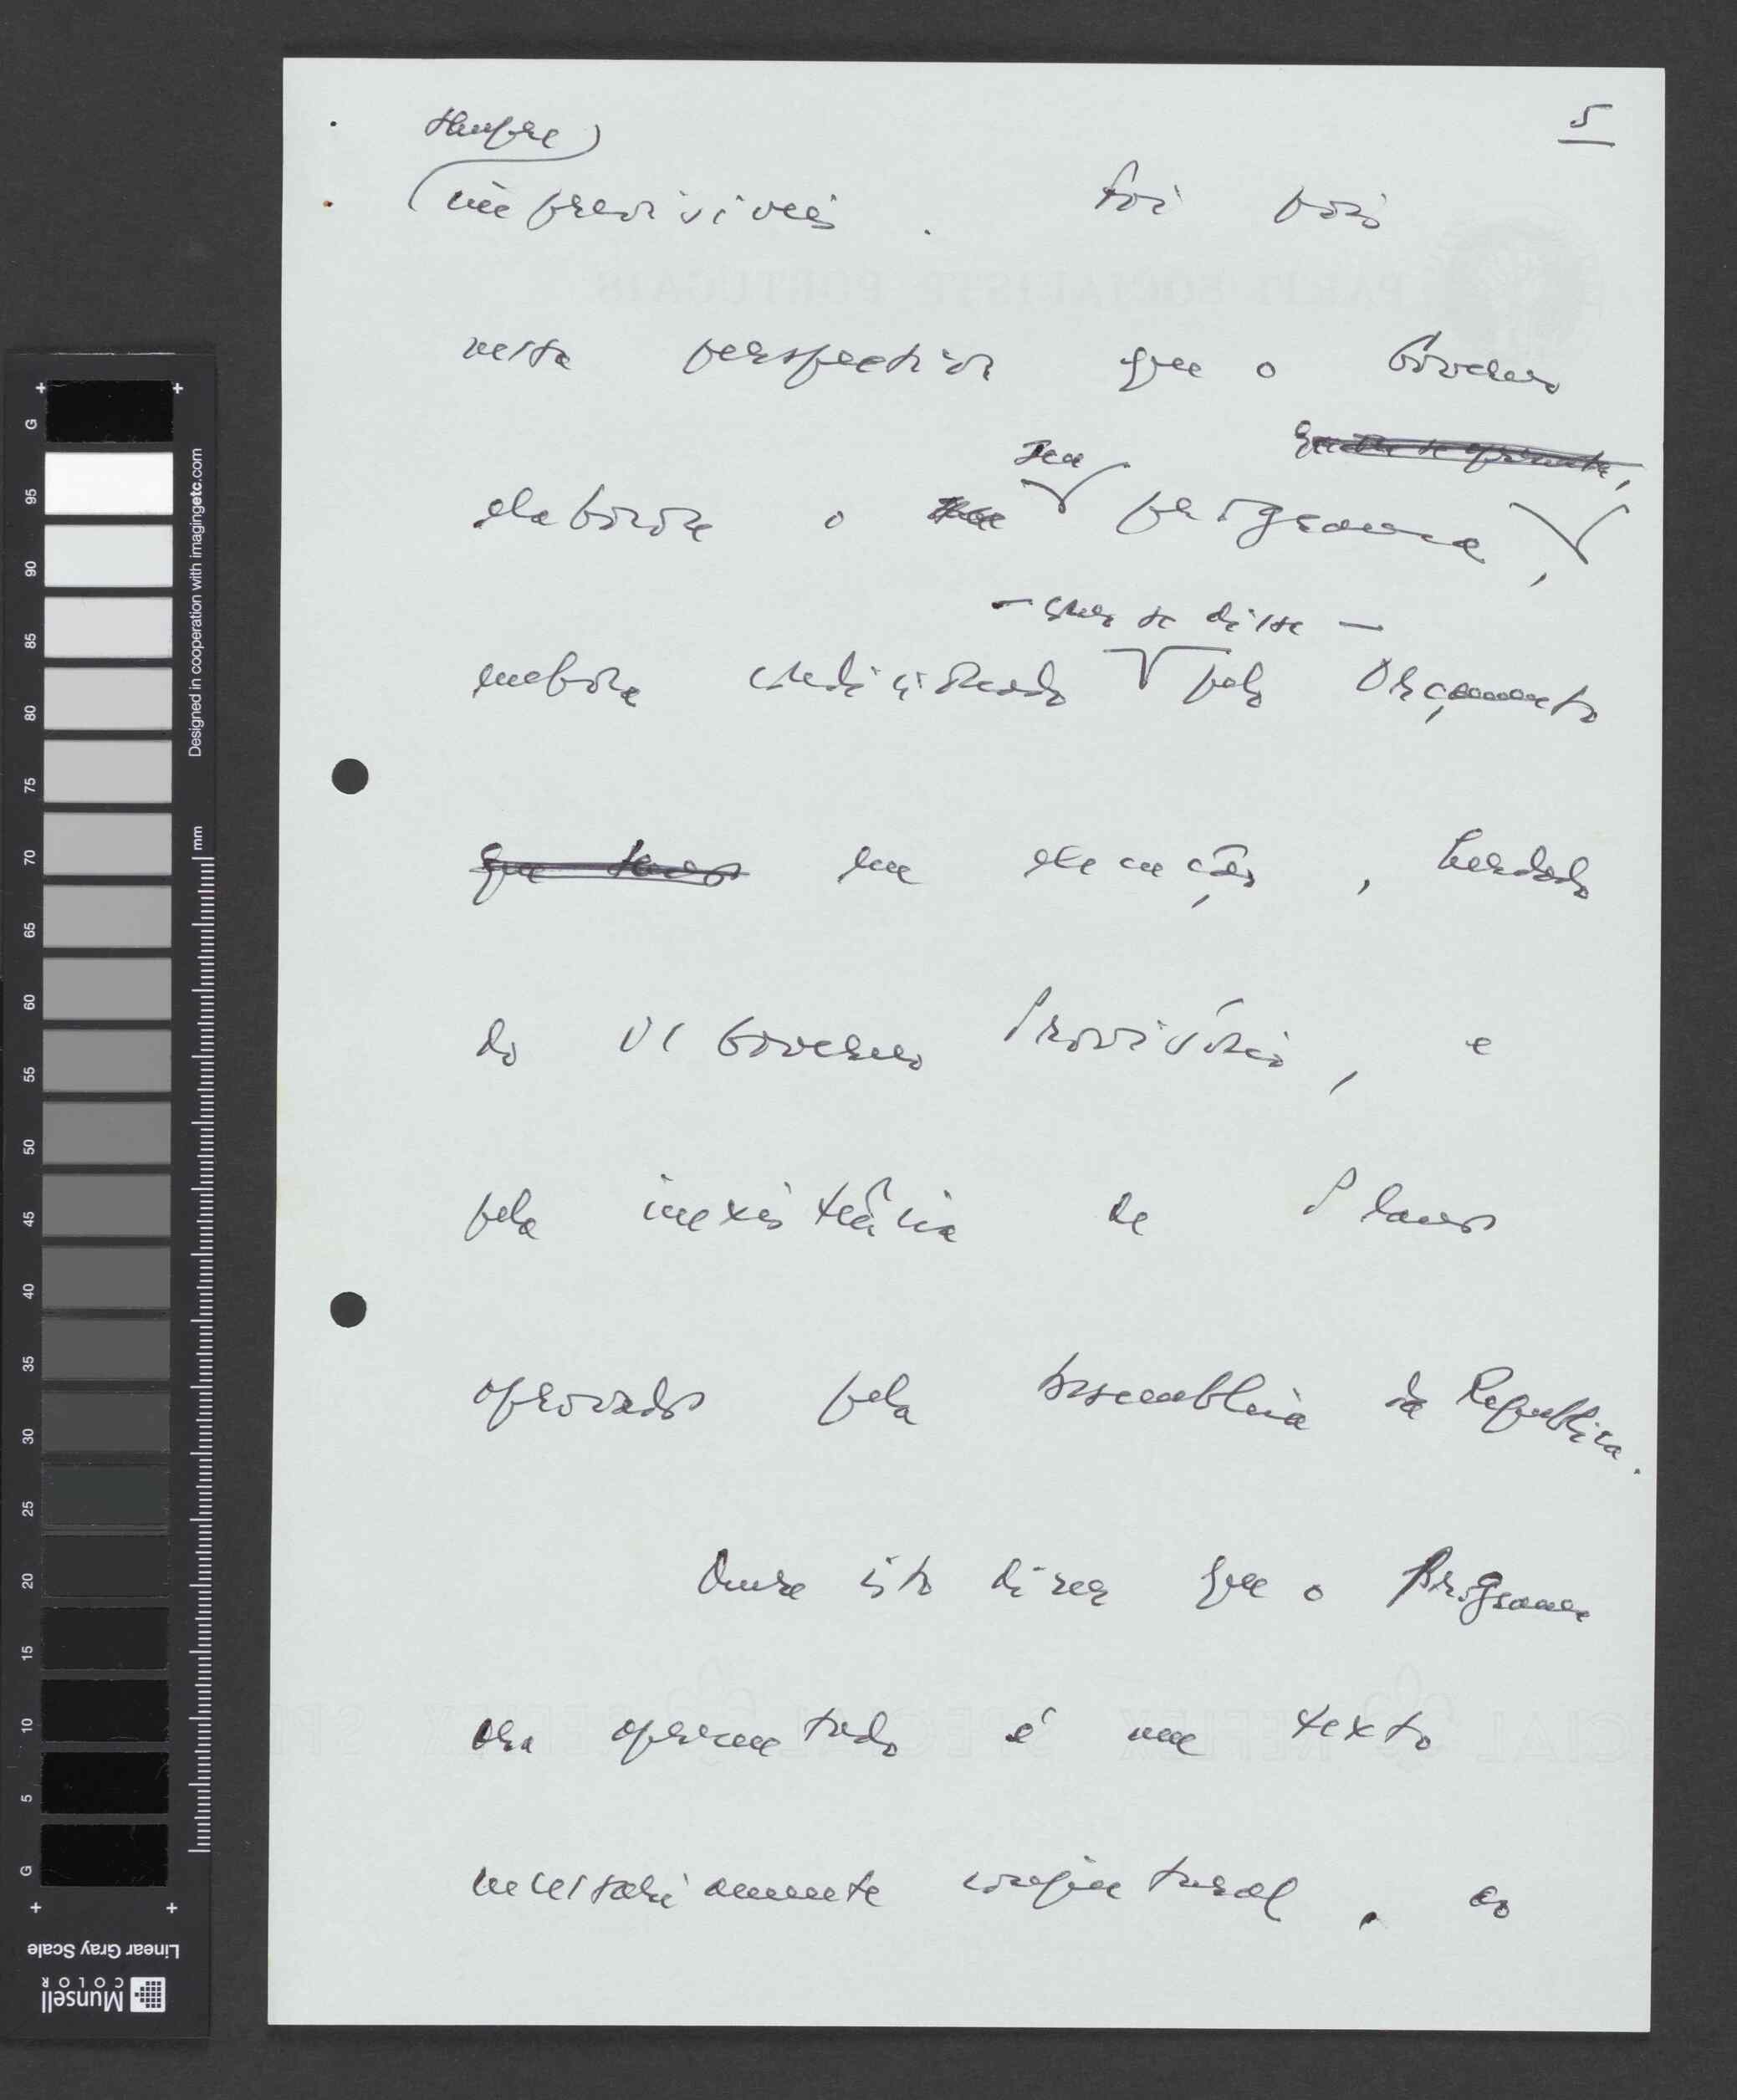 5
sempre
imprevisíveis. Foi pois
nesta perspectiva que o Governo
seu
elaborou o programa,
— como se disse —
embora condicionado pelo Orçamento
que temos em execução, herdado
do VI Governo Provisório, e
pela inexistência de Plano
aprovado pela Assembleia da República.
Quer isto dizer que o Programa
ora apresentado é um texto
necessariamente conjuntural, ao
PARTI SOCIALISTE PORTUGAIS
Designed in cooperation with imagingetc.com
mm
G 95 90 85 80 75 70 65 60 55 50 45 40 35 30 25 20 15 10 5 G
Linear Gray Scale
Munsell
COLOR